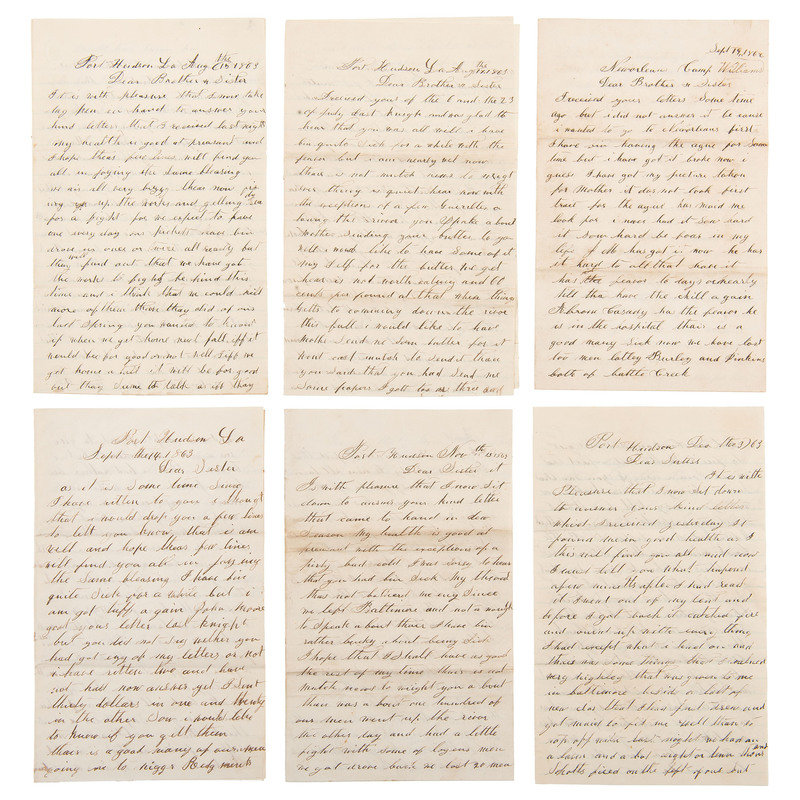 Port Hudson La Aug the 1863
Dear Brother & Sister
It is with pleasure that I now take
my pen in hand to answer your
kind letter that I received last night
my health is good at present and
I hope these few lines will find you
all in joying the same blessing
we air all very bizzy thear now
up the works and getting
for a fight for we expect to have
one every day our pickets have bin
drove in once or were all ready but
they will find out that we have got
the works to fight be hind this
time and i think that we could
more of them than they did of our
last Spring you wanted to know
if when we get home next fall iff it
would be for good or not well iff we
got home a tall it will be for good
but they Seme to talk as iff they
Port Hudson La Aug the 1863
Dear Brother & Sister
I received your of the 6 and the 23
of July last knight and was glad to
hear that you was all well i have
bin quite Sick for a while with the
feaver but i am nearly well now
thair is not mutch news to wright
ever thing is quiet hear now with
the exceptions of a few Guerrilas
the river you Speake a bout
Mother Sending your butter to you
well i would like to have Some of it
my Self for the butter we get
hear is not worth eating and 60
cents per pound at that when things
getts to comming down the river
this fall i would like to have
Mother Send me Som butter for it
wont cost mutch to Send it than
you Said that you had Send me
Some papers I gott too or three and
Sept 19, 1862
Neworleans Camp Williams
Dear Brother & Sister
I received your letters Some time
ago but i did not answer it be cause
i wanted to go to Neworleans first
I have bin having the ague for Som
time but i have got it broke now i
guess I have got my picture taken
for Mother it das not look first
trait for the ague has maid me
look for i never had it Sow hard
it Sow hard be foar in my
life has got it now he has
it hard to all that have it
has the feavor to days or nearly
till tha have the chill a gain
Abrom Casady has the feavor he
is in the hospital thair is a
good many Sick now we have lost
too men latley Burley and
both of battle Creek
Port Hudson La
Sept the 14, 1863
Dear Sister
as it is Some time Since
I have riten to you i thought
that i would drop you a few lines
to lett you know that i am
well and hope theas few lines
will find you all in joying
the Same bleasing I have bin
quite Sick for a while but i
am got tuff a gain John Moore
got your letter last knight
but you did not Say wether you
had got any of my letters or not
i have ritten two and have
not had now answer yet I Sent
thirty dollars in one and twenty
in the other Sow i would like
to know if you gott them
thair is a good many of our men
going in to niggr Redgments
Port Hudson Nov the 1863
Dear Sister it
is with pleasure that I now Set
down to answer your kind letter
that came to hand in dew
Season My health is good at
present with the exceptions of a
purty bad cold I was sorry to hear
that you had bin Sick My throat
has not botherd me eny Since
we left Baltimore and not a nough
to Speake a bout thair I have bin
rather lucky a bout being Sick
I hope that I Shall have as good
the rest of my time thair is not
mutch news to wright you a bout
thair was a bout one hundred of
our men went up the river
the other day and had a little
fight with some of logans men
we got drove back we lost 20 men
Port Hudson Dec the 2, /63
Dear Sisters
It is with
Pleasure that I now Set down
to answer your kind letter
which I received yesterday it
found me in good health as I
this will find you all and now
I must tell you what hapened
a few minutes after I had read
it I went out of my tent and
before I got back it catched fire
and burnt up with every thing
I had except what i had on and
thair was some things that I valued
very highley that was given to me
in baltimore besides a coat of
new that I has just drew and
got maid to fit me well than to
top off with last night we had an
a larm and a bout eight or tenn
Shotts fired on the left of our tent